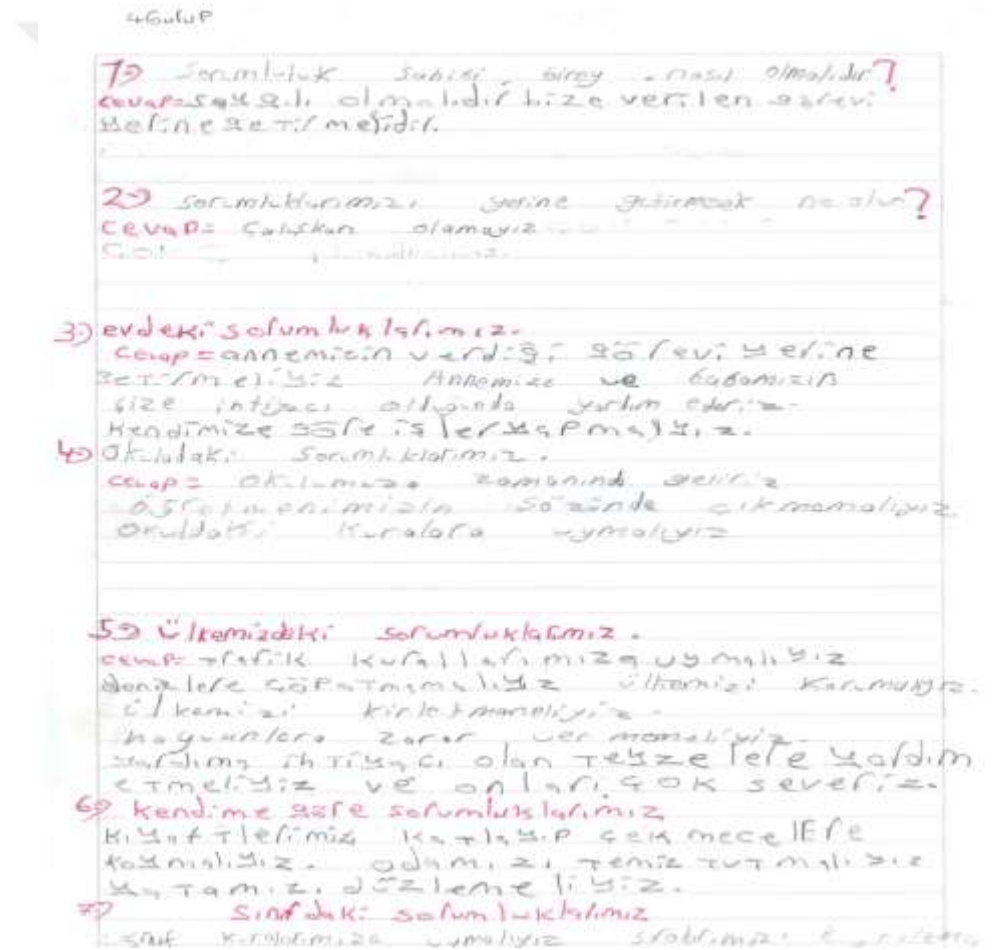 4 Gurup
1-) Sorumluluk sahibi birey nasıl olmalıdır?
cevap=saygılı olmalıdır bize verilen görevi
yerine getirmelidir.
2-) sorumluklarımızı yerine getirmesek ne olur?
cevap= Çalışkan olamayız
3-) evdeki sorumluklarımız.
cevap=annemizin verdiği görevi yerine
getirmeliyiz Annemize ve babamızın
size intiyacı olduğunda yardım ederiz.
Kendimize göre işler yapmalyız.
4-) Okuldaki sorumluklarımız.
cevap= okulumuza zamanında geliriz
öğretmenimizin sözünde çıkmamalıyız
Okuldaki kuralara uymalıyız
5-) Ülkemizdeki sorumluklarımız.
cevap= trafik kurallarımıza uymalıyız
denizlere çöp atmamalıyız ülkemizi Korumalıyız.
ülkemizi kirletmemeliyiz.
hayvanlara zarar vermemeliyiz.
yardıma ihtiyacı olan teyzelere yardım
etmeliyiz ve onları çok severiz.
6-) kendime göre sorumluklarımız
kıyaftlerimiz katlayıp çekmecelere
koymalıyız. odamızı temiz tutmalıyız
yatamızı düzlemeliyiz.
7-) Sınıfdaki sorumluklarımız
sınıf kuralarımıza uymalıyız